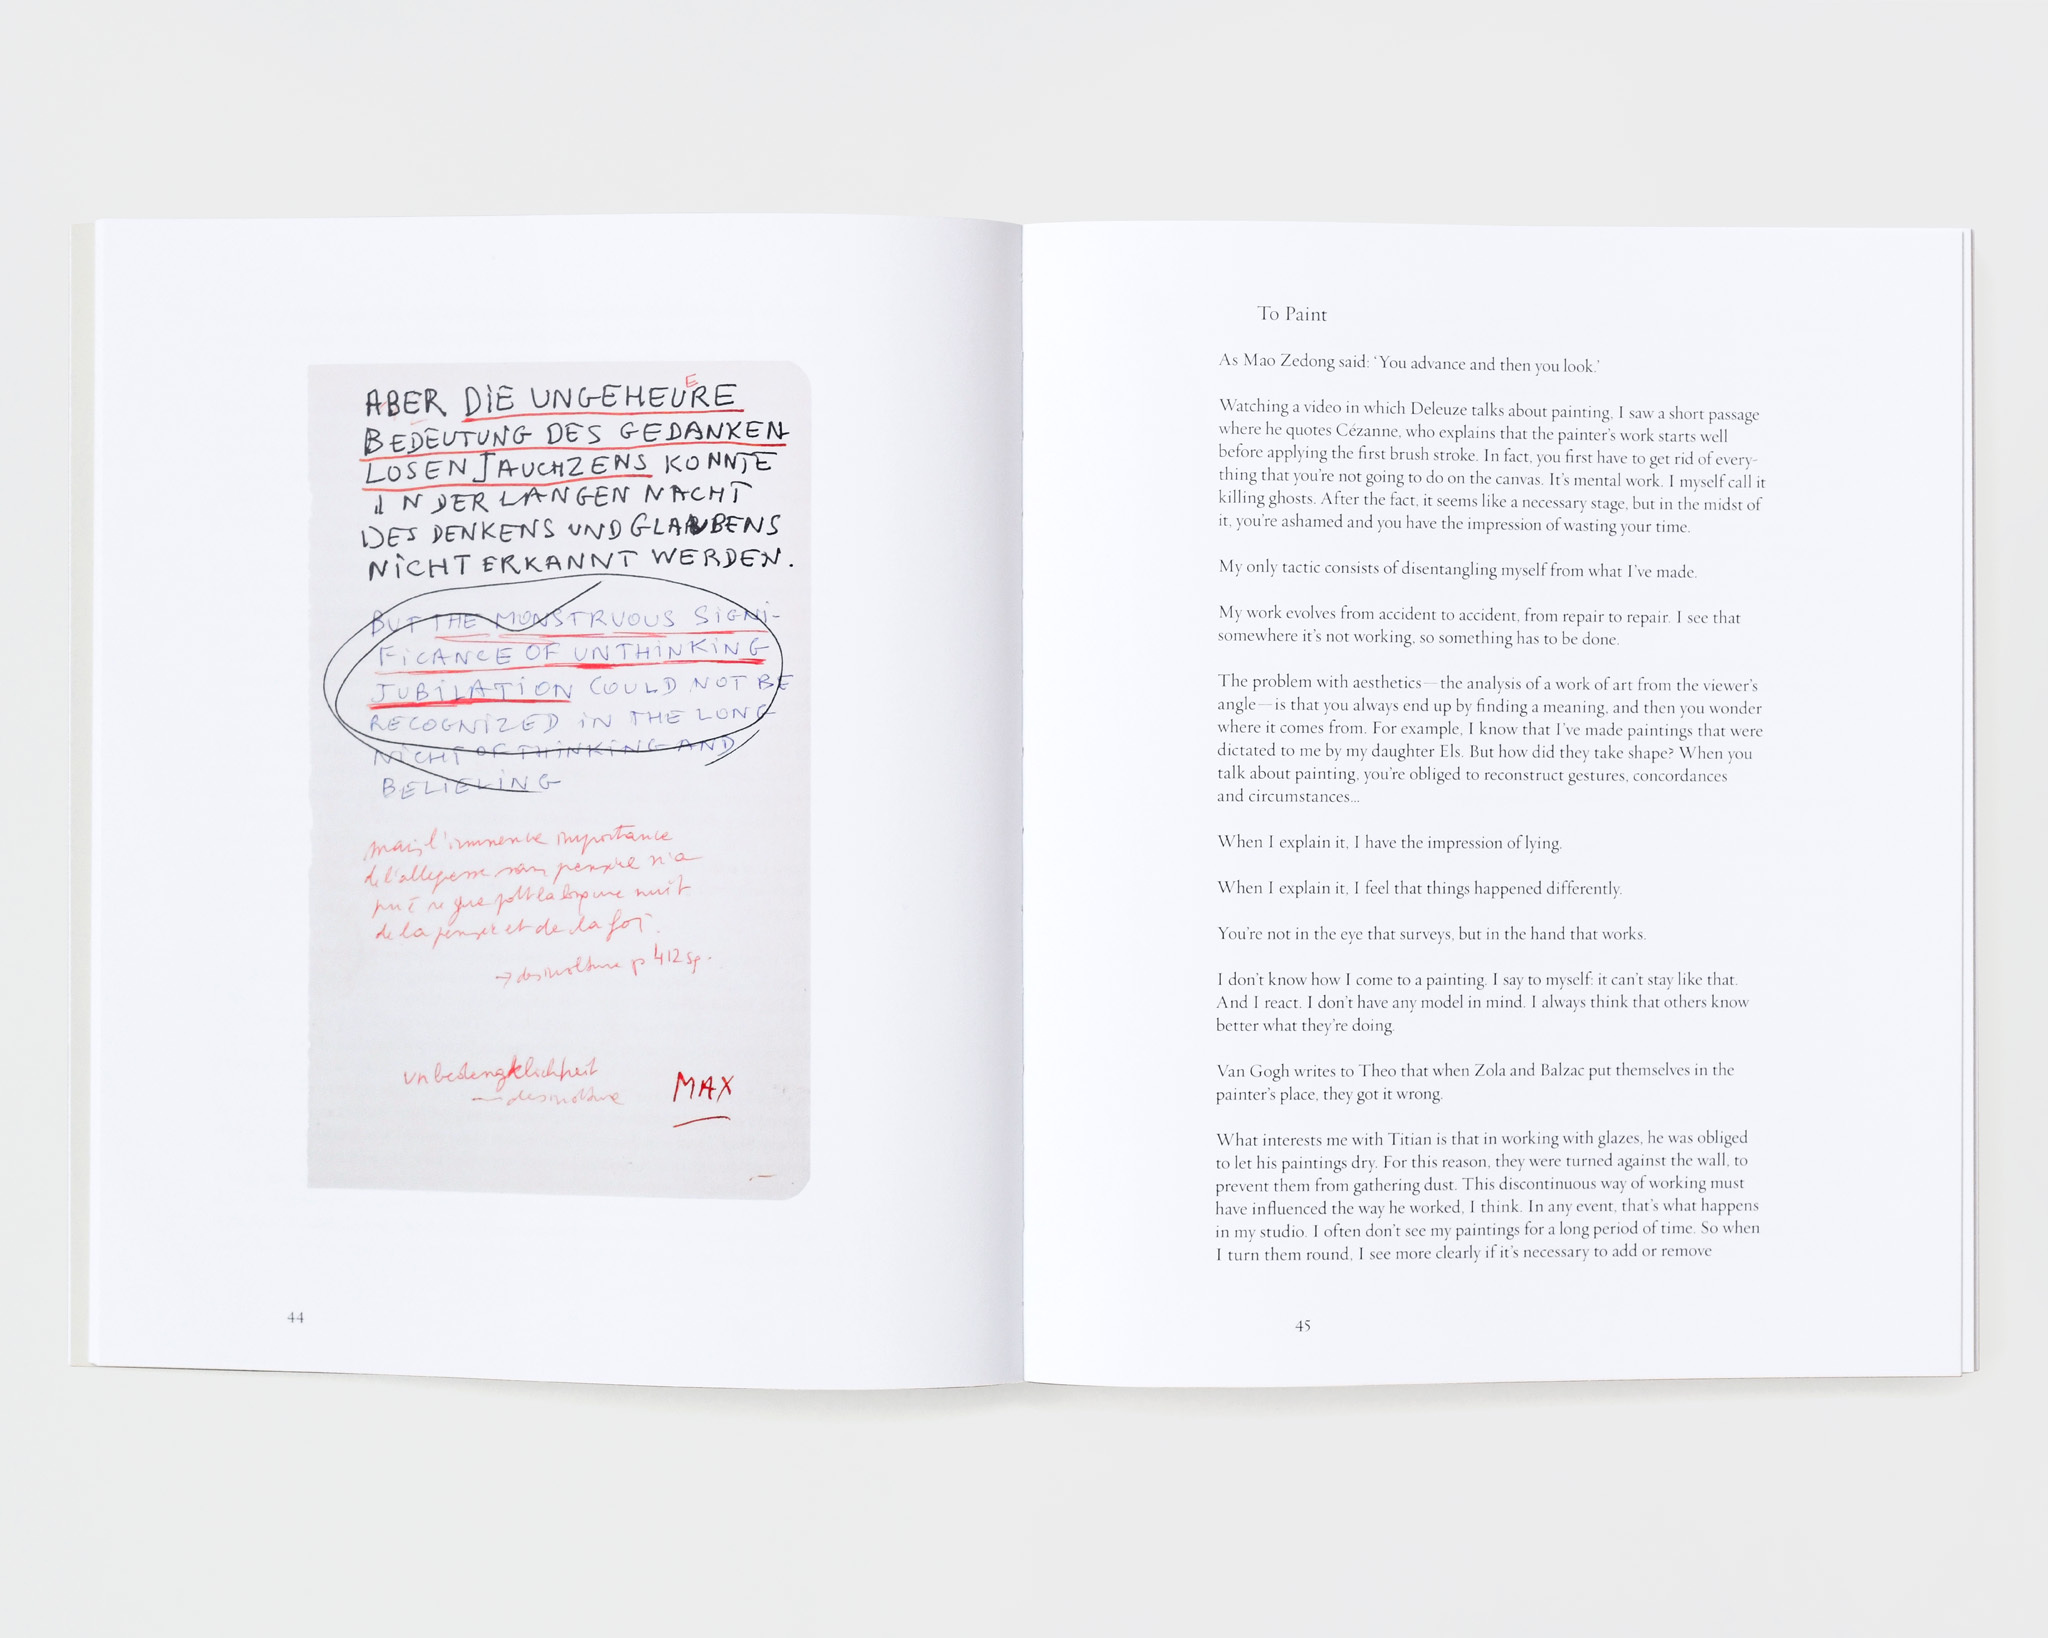 ABER DIE UNGEHEURE
E
BEDEUTUNG DES GEDANKEN
LOSEN JAUCHZENS KONNTE
IN DER LANGEN NACHT
DES DENKENS UND GLAUBENS
NICHT ERKANNT WERDEN.
BUT THE MONSTRUOUS SIGNI-
FICANCE OF UNTHINKING
JUBILATION COULD NOT BE
RECOGNIZED IN THE LONG
NICHT OF THINKING AND
BELIEVING
mais l'immence importance
de l'allegesse sans pensée n'a
nuit
de la pensée et de la foi.
→ desinvolture p 412 sq.
desinvolture
MAX
44
To Paint
As Mao Zedong said: ‘You advance and then you look.’
Watching a video in which Deleuze talks about painting, I saw a short passage
where he quotes Cézanne, who explains that the painter’s work starts well
before applying the first brush stroke. In fact, you first have to get rid of every-
thing that you’re not going to do on the canvas. It’s mental work. I myself call it
killing ghosts. After the fact, it seems like a necessary stage, but in the midst of
it, you’re ashamed and you have the impression of wasting your time.
My only tactic consists of disentangling myself from what I’ve made.
My work evolves from accident to accident, from repair to repair. I see that
somewhere it’s not working, so something has to be done.
The problem with aesthetics—the analysis of a work of art from the viewer’s
angle—is that you always end up by finding a meaning, and then you wonder
where it comes from. For example, I know that I’ve made paintings that were
dictated to me by my daughter Els. But how did they take shape? When you
talk about painting, you’re obliged to reconstruct gestures, concordances
and circumstances…
When I explain it, I have the impression of lying.
When I explain it, I feel that things happened differently.
You’re not in the eye that surveys, but in the hand that works.
I don’t know how I come to a painting. I say to myself: it can’t stay like that.
And I react. I don’t have any model in mind. I always think that others know
better what they’re doing.
Van Gogh writes to Theo that when Zola and Balzac put themselves in the
painter’s place, they got it wrong.
What interests me with Titian is that in working with glazes, he was obliged
to let his paintings dry. For this reason, they were turned against the wall, to
prevent them from gathering dust. This discontinuous way of working must
have influenced the way he worked, I think. In any event, that’s what happens
in my studio. I often don’t see my paintings for a long period of time. So when
I turn them round, I see more clearly if it’s necessary to add or remove
45